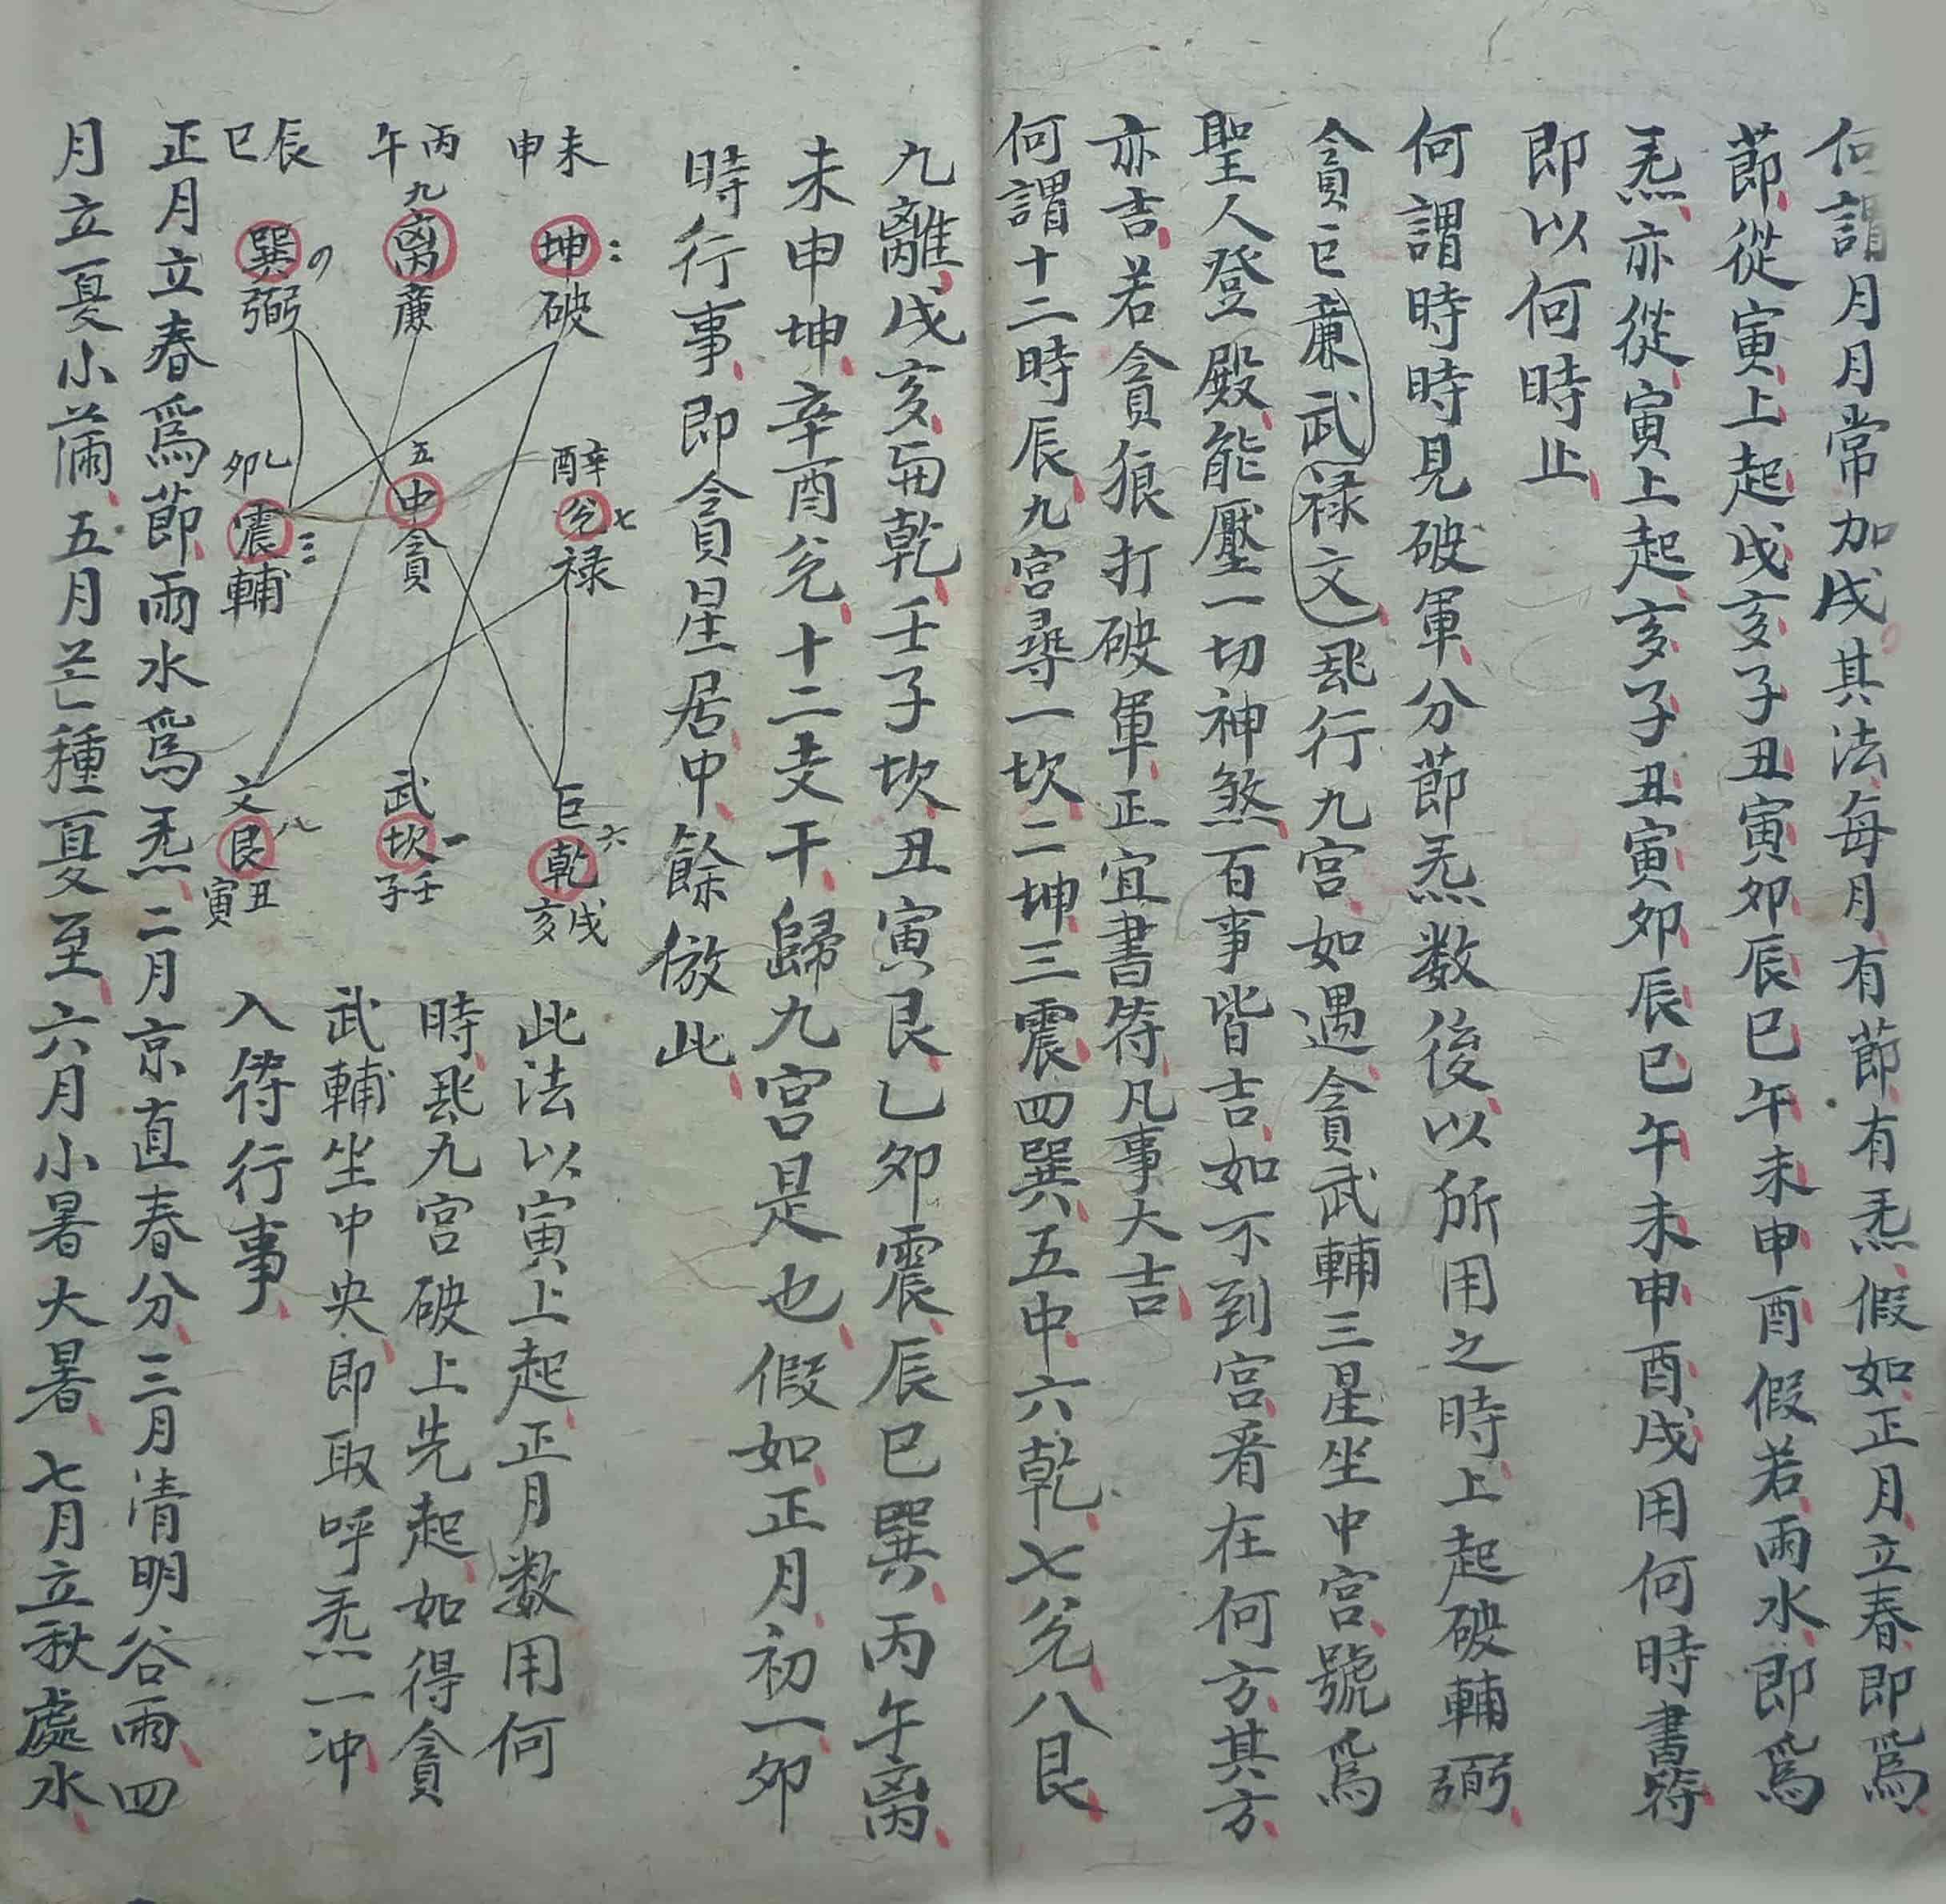 何謂月月常加戌其法每月有節有炁假如正月立春即爲
節從寅上起戌亥子丑寅卯辰巳午未申酉假若雨水即爲
炁亦從寅上起亥子丑寅卯辰巳午未申酉戌用何時書符
即以何時止
何謂時時見破軍分節炁数後以所用之時上起破輔弼
貪巨廉武禄文飛行九宮如遇貪武輔三星坐中宮號爲
聖人登殿能壓一切神煞百事皆吉如不到宮看在何方其方
亦吉若貪狼打破軍正宜書符凡事大吉
何謂十二時辰九宮尋一坎二坤三震四巽五中六乾七兊八艮
九離戌亥両乾壬子坎丑寅艮乙卯震辰巳巽丙午离
未申坤辛酉兊十二支干歸九宮是也假如正月初一卯
時行事即貪星居中餘倣此
未申 坤 二 破
丙午 九 离 廉
辰巳 巽 弼
辛酉 兊 七 禄
五 中 貪
乙卯 震 三 輔
巨 六 乾 戌亥
武 坎 一 壬子
文 八 艮 丑寅
此法以寅上起正月数用何
時飛九宮破上先起如得貪
武輔坐中央即取呼炁一冲
入符行事
正月立春爲節雨水爲炁二月京直春分三月清明谷雨四
月立夏小满五月芒種夏至六月小暑大暑七月立秋處水